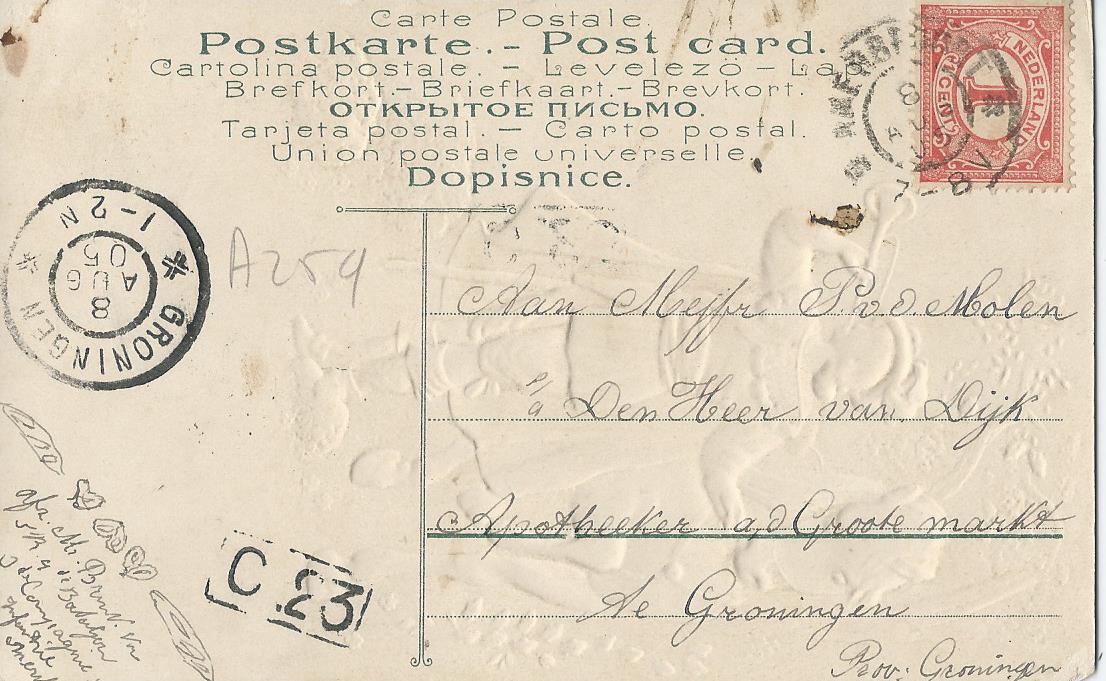 Carte Postale.
Postkarte. – Post card.
Cartolina postale. – Levelezö – Lap.
Brefkort. – Briefkaart. – Brevkort.
ОТКРЫТОЕ ПИСЬМО.
Tarjeta postal. – Carto postal.
Union postale universelle.
Dopisnice.
NEDERLAND
1
CENT
8 AUG 05
7–8 V
GRONINGEN
8
AUG
05
1–2 N
A259
Aan Mejfr P. v. d. Molen
p/a Den Heer van Dijk
Apotheeker a,d Groote markt
te Groningen
Prov: Groningen
C 23
afz. M.
Bataljon
Compagnie